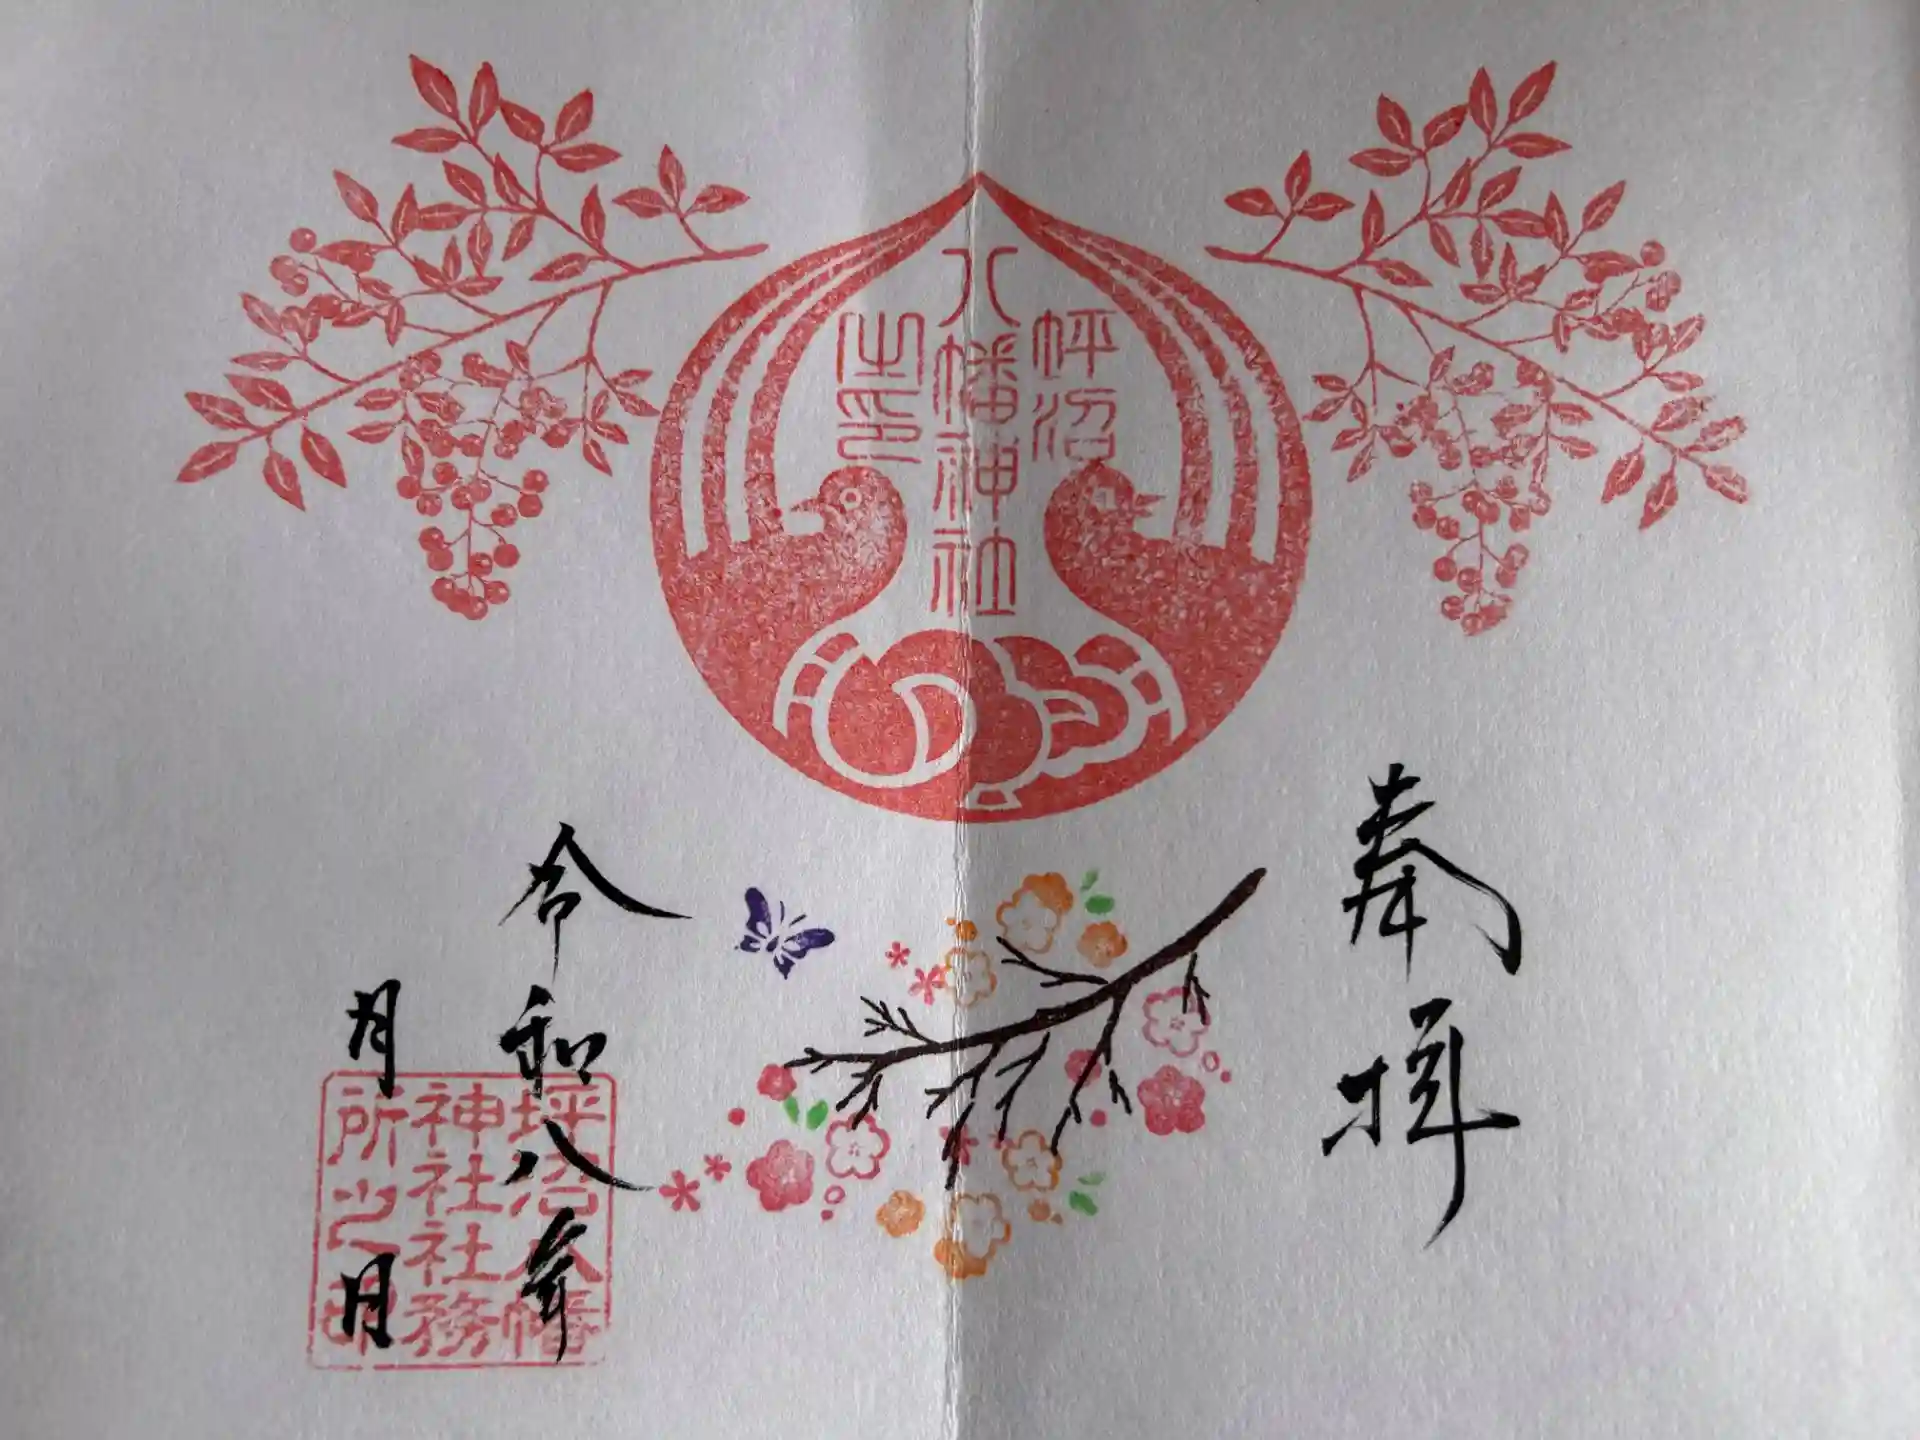 奉拝
坪沼
八幡神社
之印
令和八年
月 月
坪沼八幡
神社社務
所之印